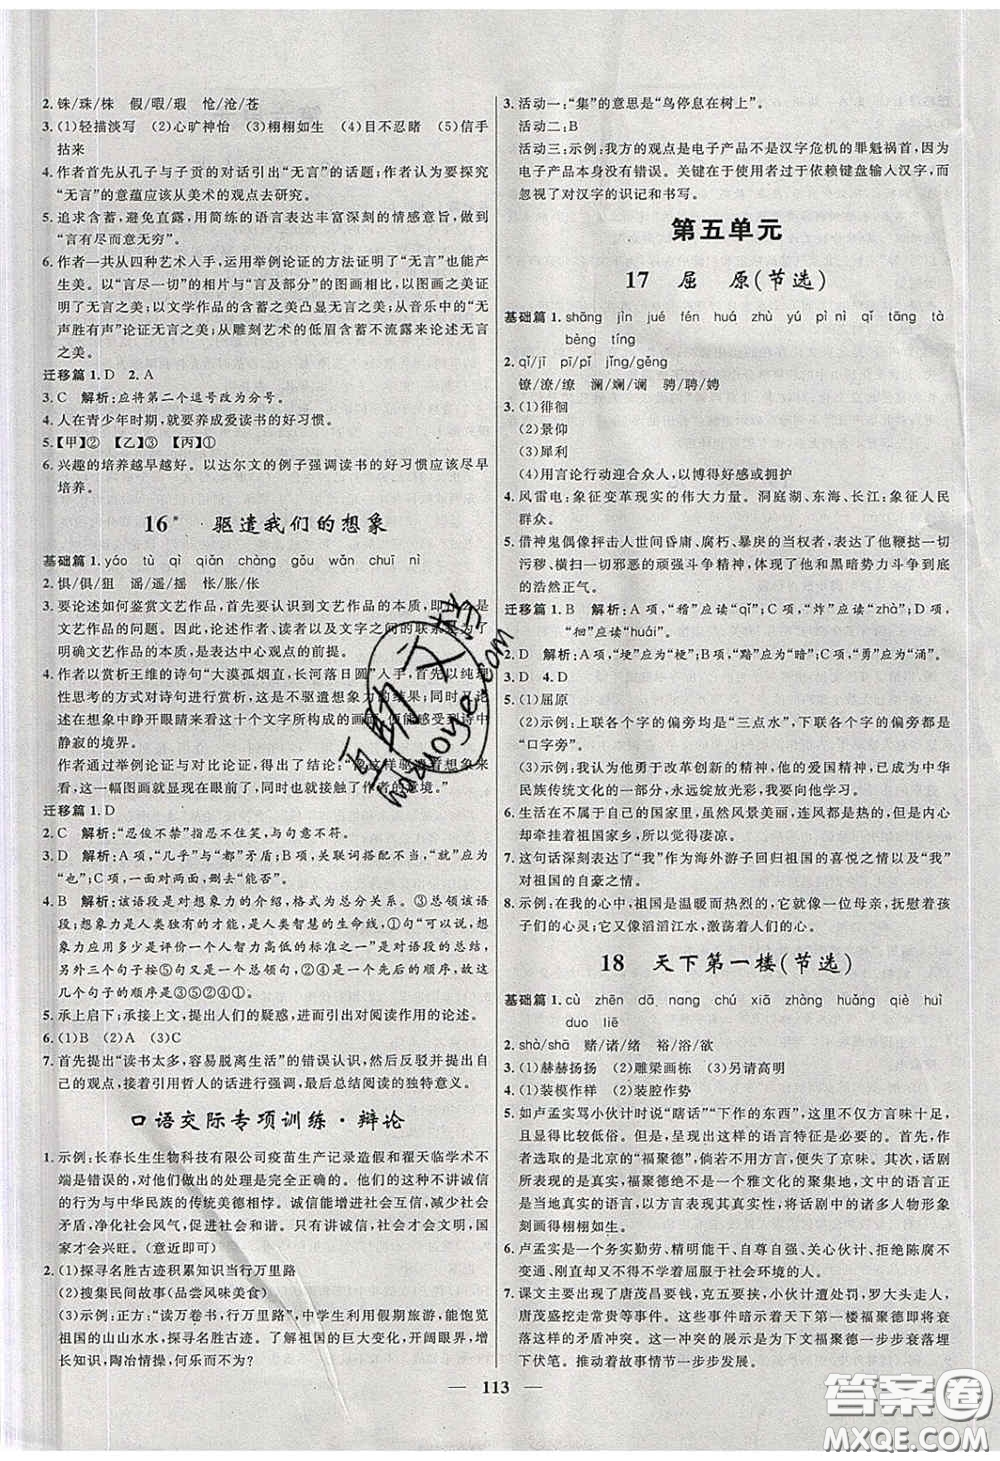 2. 铢/珠/株　假/暇/瑕　怆/沧/苍
3. (1)轻描淡写　(2)心旷神怡　(3)栩栩如生　(4)目不忍睹　(5)信手
拈来
4. 作者首先从孔子与子贡的对话引出“无言”的话题;作者认为要探究
“无言”的意蕴应该从美术的观点去研究。
5. 追求含蓄,避免直露,用简练的语言表达丰富深刻的情感意旨,做到
“言有尽而意无穷”。
6. 作者一共从四种艺术入手,运用举例论证的方法证明了“无言”也能产
生美。以“言尽一切”的相片与“言及部分”的图画相比,以图画之美证
明了无言之美;以文学作品的含蓄之美凸显无言之美;从音乐中的“无
声胜有声”论证无言之美;从雕刻艺术的低眉含蓄不流露来论述无言
之美。
迁移篇 1. D　2. A
3. C　解析:应将第二个逗号改为分号。
4. 人在青少年时期,就要养成爱读书的好习惯。
5.【甲】②　【乙】③　【丙】①
6. 兴趣的培养越早越好。以达尔文的例子强调读书的好习惯应该尽早
培养。
16*　驱遣我们的想象
基础篇 1. yáo　tù　qì　qiǎn　chàng　gōu　wǎn　chuī　nì
2. 惧/俱/狙　谣/遥/摇　怅/胀/伥
3. 要论述如何鉴赏文艺作品,首先要认识到文艺作品的本质,即什么是
文艺作品的问题。因此,论述作者、读者以及文字之间的联系是为了
明确文艺作品的本质,是表达中心观点的前提。
4. 作者以赏析王维的诗句“大漠孤烟直,长河落日圆”入手,首先以纯理
性思考的方式对诗句进行赏析,这是不驱遣想象力的结果;同时又从
想象中睁开眼睛来看这十个文字所构成的画面,便能感受到诗中
静寂的境界。
作者通过举例论证与对比论证,得出了结论:“像这样驱遣着想象来
看,这一幅图画就显现在眼前了。同时也就接触了作者的意境。”
迁移篇 1. D
2. C　解析:“忍俊不禁”指忍不住笑,与句意不符。
3. D　解析:A项,“几乎”与“都”矛盾;B项,关联词搭配不当,“就”应为
“也”;C项,一面对两面,删去“能否”。
4. B　解析:该语段是对想象力的介绍,格式为总分关系。③总领该语
段;想象力是人类独有的才能,是人类智慧的生命线,①句“可以说,想
象力的多少是评价一个人智力高低的标准之一”是对语段的总结,
另外两句又是一个总领句,后面两个句子是一先一后的顺序,故
这几个句子的顺序应为③⑤②④①。
5. 承上启下;承接上文,提出人们的疑惑,进而引出对阅读作用的论述。
6. (1)B　(2)A　(3)C
7. 首先提出“读书太多,容易脱离生活”的错误认识,然后反驳并提出自
己的观点,接着引用哲人的话进行强调,最后总结阅读的独特意义。
口语交际专项训练·辩论
1. 示例:长春长生生物科技有限公司疫苗生产记录造假和翟天临学术不
端是错误的,对他们做出的处理是完全正确的。他们这种不讲诚信
的行为与中华民族的传统美德相悖。诚信能增进社会互信,减少社会
矛盾,净化社会风气,促进社会和谐。只有讲诚信,社会才会文明,国
家才会兴旺。(意近即可)
2. (1)探寻名胜古迹积累知识当行万里路
(2)搜集民间故事(品尝风味美食)
(3)示例:正方:“读万卷书,行万里路”,中学生利用假期旅游,能饱览
祖国的山山水水,探寻名胜古迹。了解祖国的巨大变化,开阔眼界,增
长知识,陶冶情操,何乐而不为?
3. 活动一:“集”的意思是“鸟停息在树上”。
活动二:B
活动三:示例:我方的观点是电子产品不是汉字危机的罪魁祸首,因为
电子产品本身没有错误。关键在于使用者过于依赖键盘输入汉字,而
忽视了对汉字的识记和书写。
第五单元
17　屈　原(节选)
基础篇 1. shāng　jìn　jué　fén　huá　zhù　yú　pì nì　qǐ　tāng　tà
bèng　tíng
2. qǐ/jī　pī/pǐ　jīng/gěng
镣/潦/缭　澜/斓/谰　骋/聘/娉
3. (1)徘徊
(2)景仰
(3)犀利
(4)用言论行动迎合众人,以博得好感或拥护
4. 风雷电:象征变革现实的伟大力量。洞庭湖、东海、长江:象征人民
群众。
5. 借神鬼偶像抨击人世间昏庸、腐朽、暴戾的当权者,表现了荡涤一切
污秽、横扫一切邪恶的顽强斗争精神,体现了他和黑暗势力斗争到底
的浩然正气。
迁移篇 1. B　解析:A项,“稽”应读“qǐ”;C项,“炸”应读“zhà”;D项,
“徊”应读“huái”。
2. D　解析:A项,“埂”应为“梗”;B项,“黯”应为“暗”;C项,“勇”应为“涌”。
3. D　4. D
5. (1)屈原
(2)示例:上联各个字的偏旁均是“三点水”,下联各个字的偏旁都是
“口字旁”。
(3)示例:我崇尚他勇于改革创新的精神,他的爱国精神已成为中华
民族传统文化的一部分,永远绽放光彩,我要把它继承并发扬光大。
6. 生活在不属于自己的国家里,虽然风景美丽,连风都没有变化,但内心
却牵挂着祖国家乡,所以觉得凄凉。
7. 这句话深刻表达了“我”作为海外游子回归祖国的喜悦之情以及“我”
对祖国的自豪之情。
8. 示例:在我的心中,祖国是温暖而热烈的,它就像一位母亲,抚慰着孩
子们的心灵;它又像滔滔江水,激荡着人们的心。
18　天下第一楼(节选)
基础篇 1. cù　zhēn　dā　nang　chú　xiā　zhàng　huǎng　qiè　huì
duo　liē
2. shà/shā　赌/诸/绪　裕/浴/欲
3. (1)赫赫扬扬　(2)雕梁画栋　(3)另请高明
4. (1)装模作样　(2)装腔作势
5. 如卢孟实骂小伙计时说“瞎话”“下作的东西”,这些方言京味十足,
且比较低俗。但实际上,反映出了这样的语言特征是必要的。首先,作
品展示的是北京的“福聚德”,倘若不用方言,便失去了京味。其次,话剧
所表现的环境是饭店,福聚德绝不是一个雅文化的聚集地,文中的语言正
是符合了这一特点,以方言表现其真实性,将话剧中的诸多人物形象
刻画得栩栩如生。
6. 卢孟实是一个务实勤劳、精明能干、自尊自强、关心伙计、拒绝陈腐不
变通、永远追求创新、在逆境中挣扎着却屈服于社会环境的人。
7. 课文主要出现了唐茂昌要钱,克五要挟,小伙计遭处罚,罗大头走人,
唐茂盛挖走常贵等事件。这些事件暗示着天下第一楼福聚德即将衰
落这样的矛盾冲突。这一冲突的展示是为下文福聚德一步步衰落埋
下伏笔。推动着故事情节一步步发展。
113
互助文档
huzuoye.com
答案圈
MXQE.COM